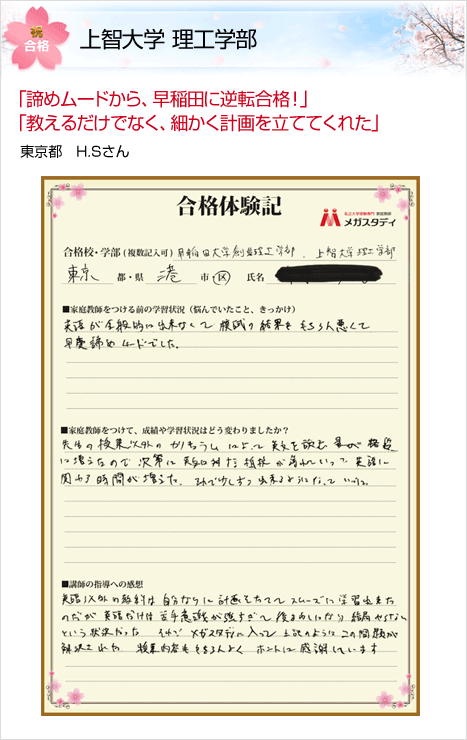 祝
合格
上智大学 理工学部
「諦めムードから、早稲田に逆転合格！」
「教えるだけでなく、細かく計画を立ててくれた」
東京都　H.Sさん
合格体験記
私立大学受験専門 家庭教師
メガスタディ
合格校・学部（複数記入可）早稲田大学創造理工学部、上智大学理工学部
東京 都・県 港 市・区 氏名
■家庭教師をつける前の学習状況（悩んでいたこと、きっかけ）
英語が全般的に出来なくて模試の結果ももちろん悪くて
早慶諦めムードでした。
■家庭教師をつけて、成績や学習状況はどう変わりましたか？
先生の授業以外のカリキュラムによって英文を読む量が格段
に増えたので次第に英語に対する抵抗が薄れていって英語に
関わる時間が増えた。それで少しずつ出来るようになっていった。
■講師の指導への感想
英語以外の教科は自分なりに計画をたててスムーズに学習出来た
のだが英語だけは苦手意識が強すぎて後まわしになり結局やらない
という状況だった それでメガスタディに入って上記のようにこの問題が
解決された 授業内容ももちろんよく ホントに感謝しています